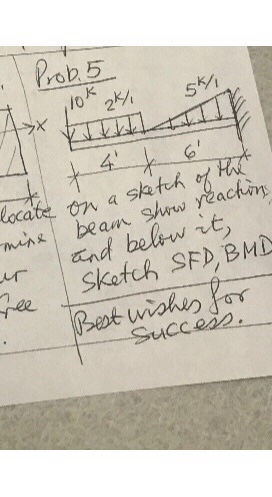 Prob. 5
10ᴷ 2ᴷ/₁ 5ᴷ/₁
X
4' 6'
locate
on a sketch of the
beam show reaction,
and below it,
sketch SFD, BMD
free
Best wishes for
success.